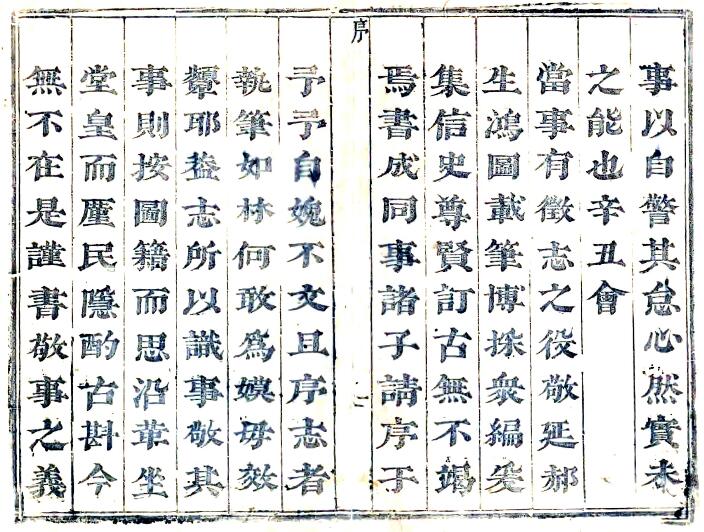 事以自警其怠心然實未
之能也辛丑會
當事有徵志之役敬延郝
生鴻圖載筆博採衆編爰
集信史尊賢訂古無不竭
焉書成同事諸子請序于
序
予予自媿不文且序志者
執筆如林何敢爲嫫母效
顰耶葢志所以識事敬其
事則按圖籍而思沿革坐
堂皇而厪民隱酌古斟今
無不在是謹書敬事之義